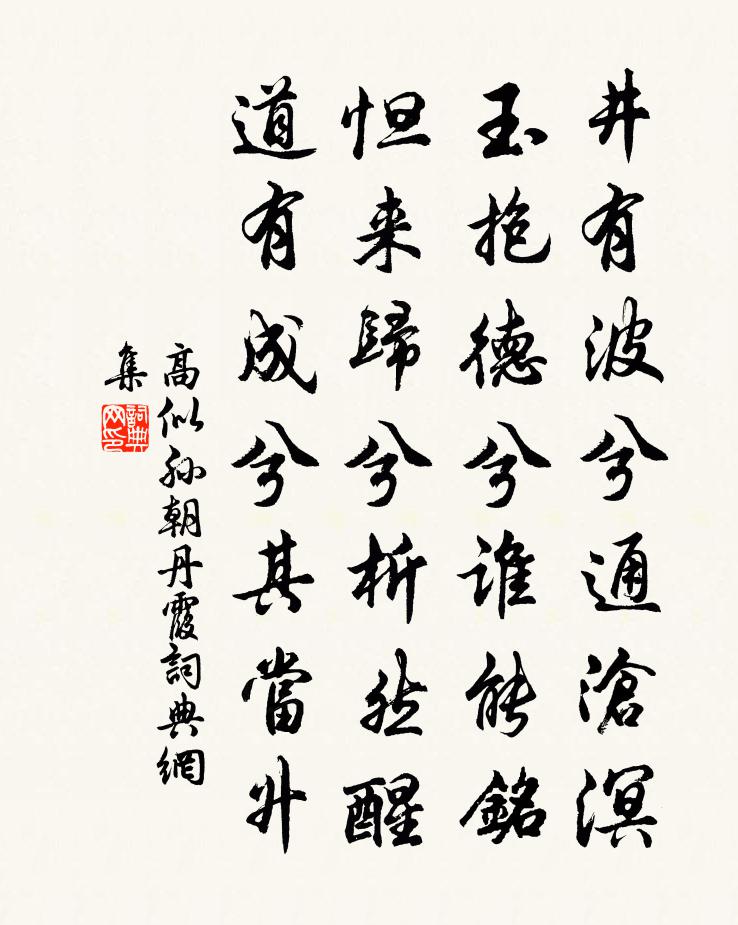 井有波兮通滄溟
玉抱德兮誰能銘
怛来歸兮析然醒
道有成兮其當升
高似孫朝丹霞詞典網
集
詞典网印